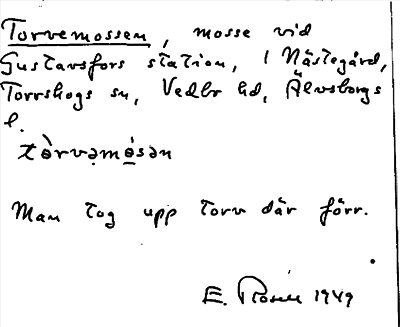 Torvemossen, mosse vid
Gustavsfors station, i Nästegård,
Torrskogs sn, Vedbo hd, Älvsborgs
l.
tòrvəmósən
Man tog upp torv där förr.
E. Rosell 1949